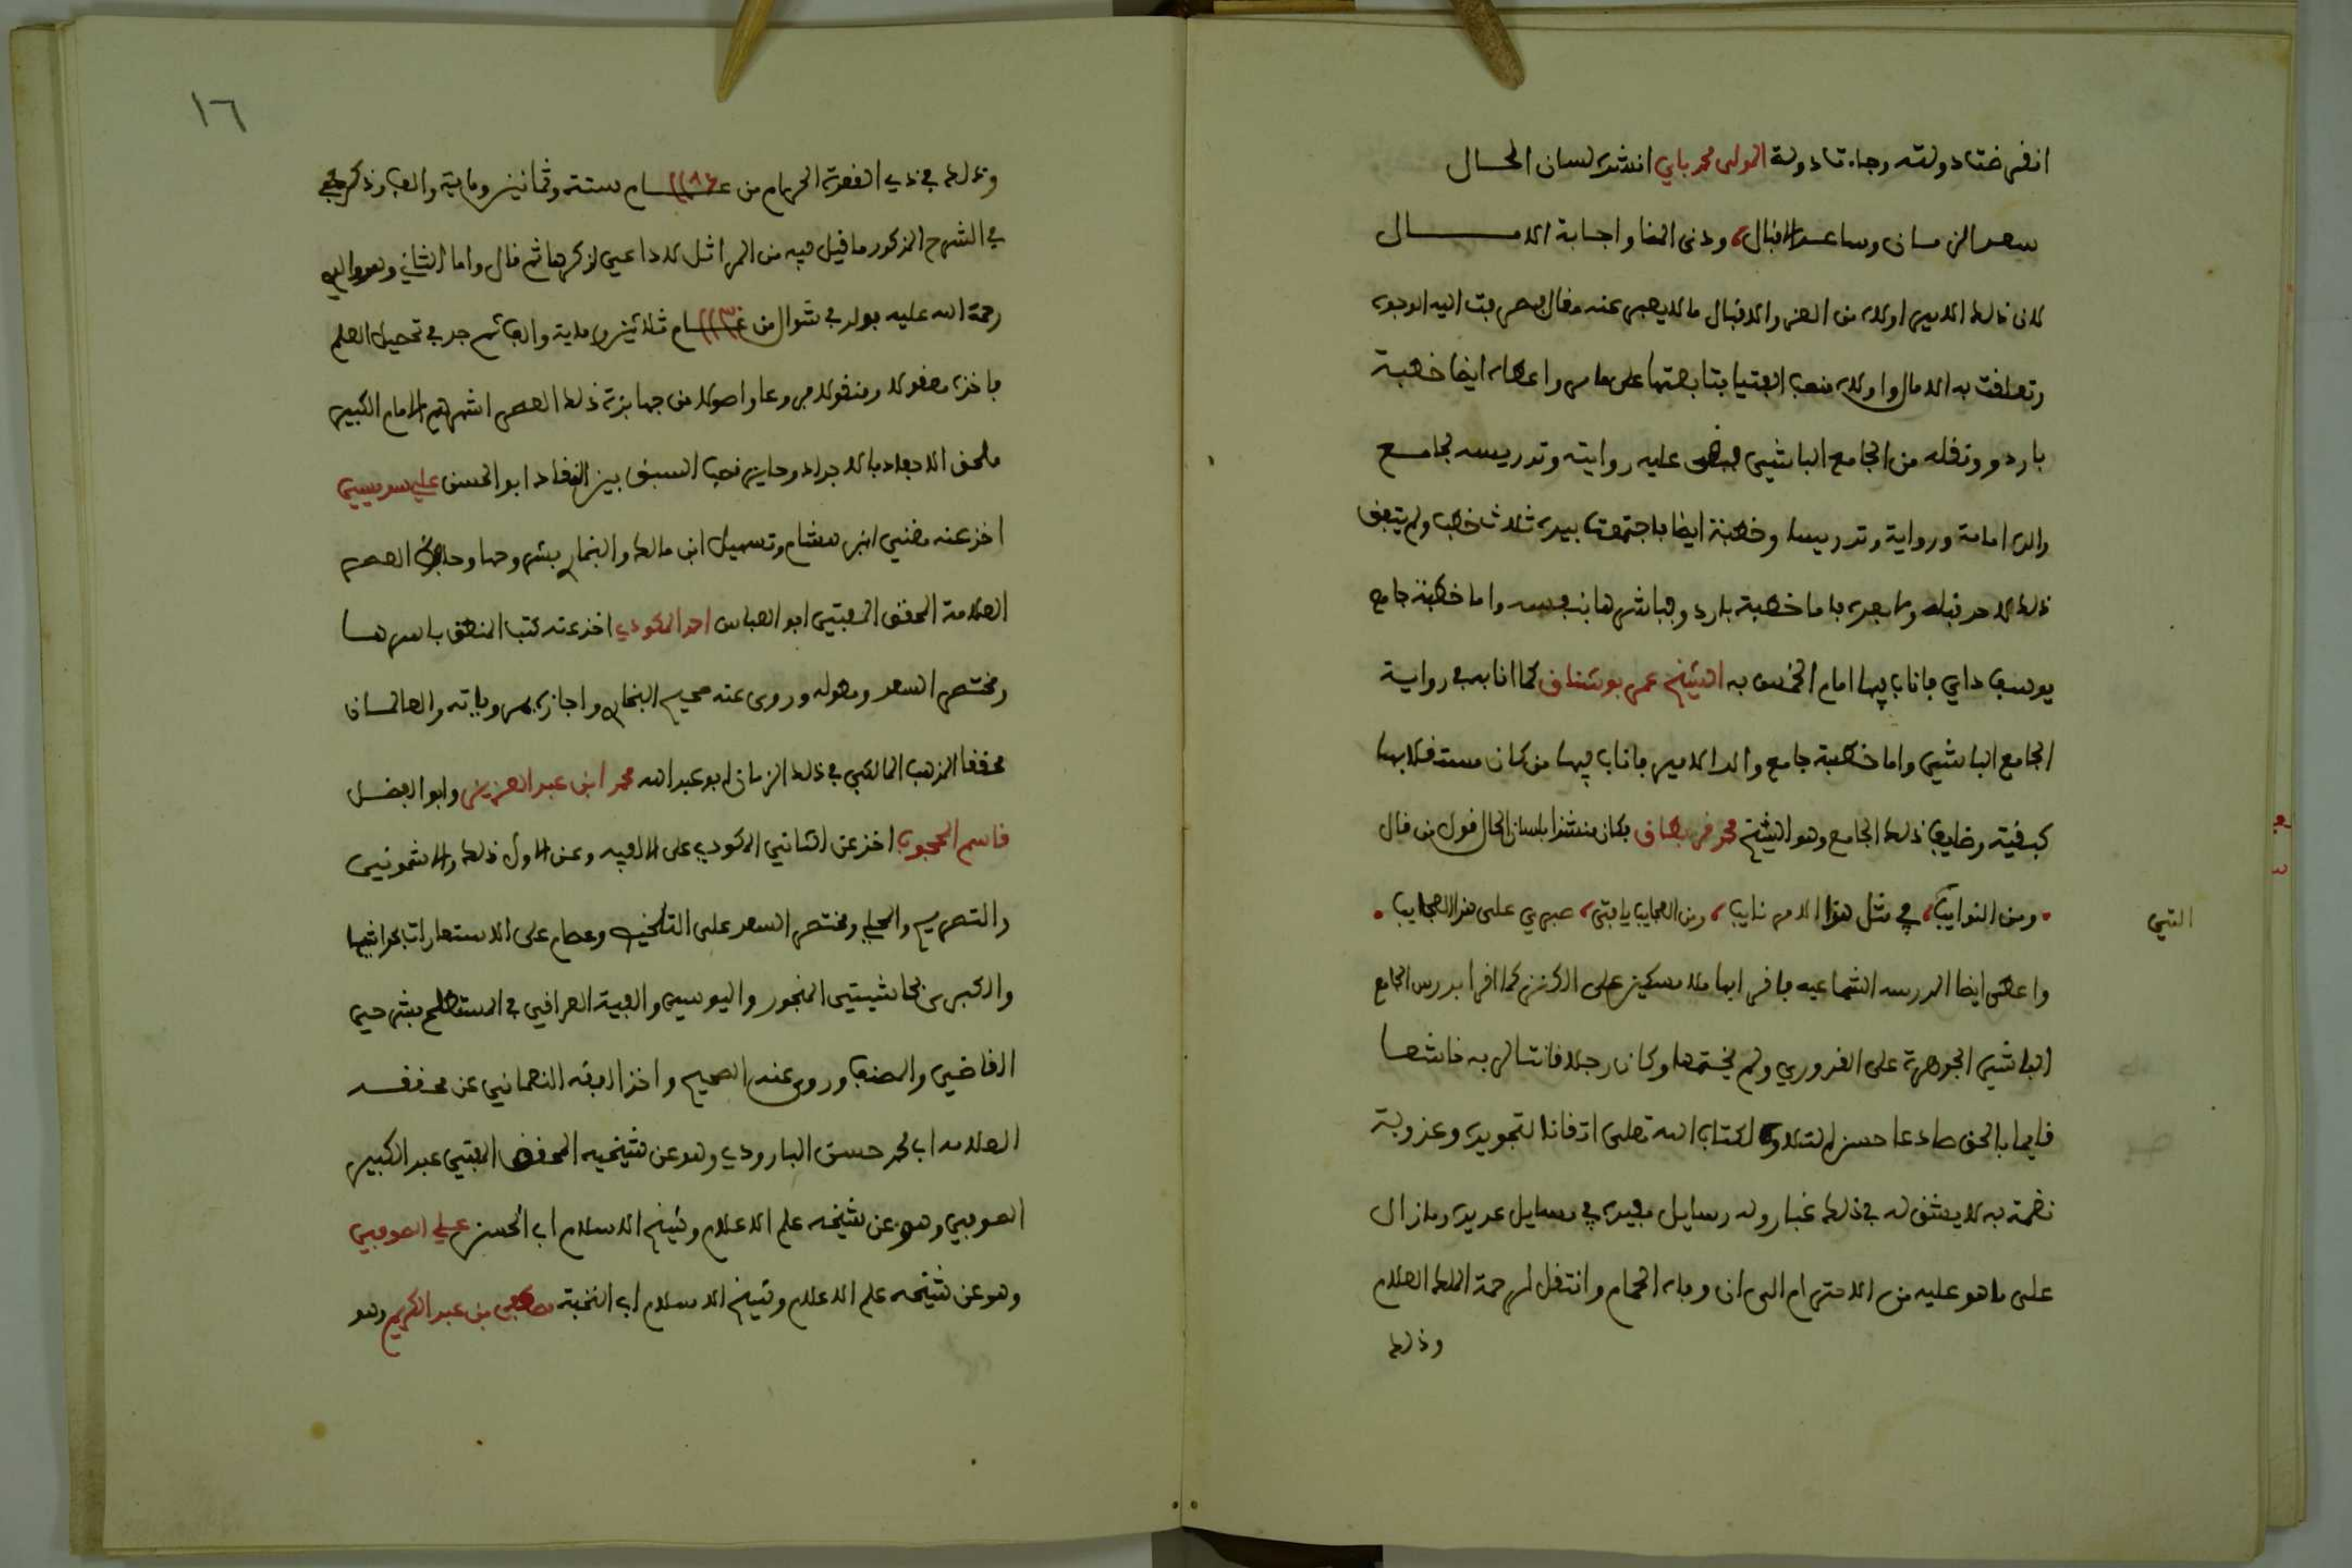 انقرضت دولته وجاءت دولة المولى محمد باي انشد لسان الحال
سعد الزمان وساعد الاقبال ودنى المنا واجابة الامال
لان ذلك الامير اولاه من العز والاقبال ما لا يعبر عنه مقال فصرفت اليه الوجوه
وتعلقت به الامال واولاه منصب الفتيا بتابعتها على ما مر واعطاه ايضا خطبة
باردو ونقله من الجامع الباشي فبقى عليه روايته وتدريسه لجامع
والده امامة ورواية وتدريسا وخطبة ايضا فاجتمعت بيده ثلاث خطب ولم يتفق
ذلك لاحد قبله ولا بعده فاما خطبة باردو فباشرها بنفسه واما خطبة جامع
يوسف داي فاناب فيها امام الخمس به الشيخ عمر بوشناق كما انابه في رواية
الجامع الباشي واما خطبة جامع والد الامير فاناب فيها من كان مستقلا بها
كبقية وظايف ذلك الجامع وهو الشيخ محمد فكان منشدا بلسان الحال قول من قال
ومن النوايب في مثل هذا الامر نايب ومن العجايب يا فتى صبري على هذه العجايب
التي
واعطى ايضا المدرسة الشماعيه فاقرا بها ملا مسكين على الكنز كما اقرا بدرس الجامع
الباشي الجوهرة على القدوري ولم يختمها وكان رجلا قانتا لربه خاشعا
قايما بالحق صادعا حسن التلاوة لكتاب الله تعلى اتقانا لتجويده وعذوبة
نغمة به لا يشق له في ذلك غبار وله رسايل مفيدة في مسايل عديدة وما زال
على ما هو عليه من الاحترام الى ان وفاه الحمام وانتقل لرحمة الملك العلام
وذلك
١٦
وذلك في ذي القعدة الحرام من عام ١١٨٦ ستة وثمانين وماية والف وذكر
في الشرح المذكور ما قيل فيه من المراثي لا داعي لذكرها ثم قال واما الثاني وهو والدي
رحمة الله عليه فولد في شوال من عام ١١٣٠ ثلاثين وماية والف ثم جد في تحصيل العلم
فاخذه معقولا ومنقولا فروعا واصولا من جهابذة ذلك العصر اشهرهم الامام الكبير
ملحق الاحفاد بالاجداد وحايز قصب السبق بين النقاد ابو الحسن علي سويسي
اخذ عنه مغني ابن هشام وتسهيل ابن مالك والبخاري بشروحها وحافظ العصر
العلامة المحقق المفتي ابو العباس احمد المكودي اخذ عنه كتب المنطق باسرها
ومختصر السعد ومطوله وروى عنه صحيح البخاري واجازه بمروياته والعالمان
محققا المذهب المالكي في ذلك الزمان ابو عبد الله محمد ابن عبد العزيز وابو الفضل
قاسم المحجوب اخذ عن الثاني المكودي على الالفيه وعن الاول ذلك والاشموني
والتصريح والمحلي ومختصر السعد على التلخيص وعصام على الاستعارات بحواشيها
والكبرى بحاشيتي المنجور واليوسي والفية العراقي في المصطلح بشرحي
القاضي والمصنف وروى عنه الصحيح واخذ الفقه النعماني عن محققه
العلامه اب محمد حسن البارودي وهو عن شيخيه المحقق المفتي عبد الكبير
الصوفي وهو عن شيخه علم الاعلام وشيخ الاسلام اب الحسن علي الصوفي
وهو عن شيخه علم الاعلام وشيخ الاسلام اب النخبة مصطفى بن عبد الكريم وهو